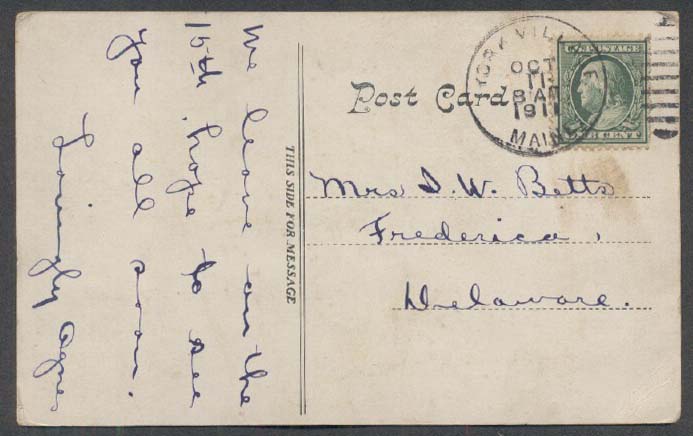 We leave on the
15th, hope to see
you all soon.
Lovingly Agnes
THIS SIDE FOR MESSAGE
Post Card
YORK VILLAGE
OCT
11
8 AM
1911
MAINE
U.S. POSTAGE
ONE CENT
Mrs S. W. Betts
Frederica,
Delaware.